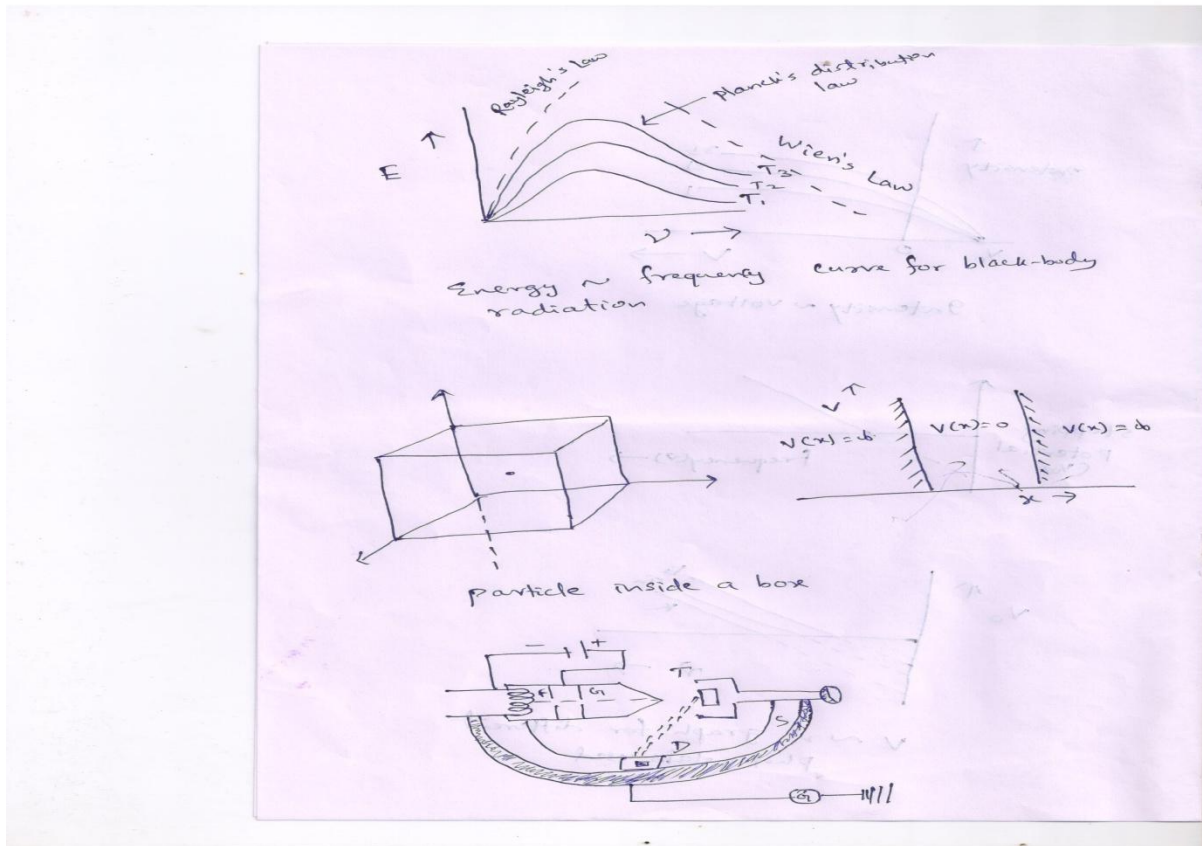 Rayleigh's Law
Planck's distribution
law
E
Wien's Law
T3
T2
T1
ν
Energy ~ frequency curve for black-body
radiation
V
V(x)=∞ V(x)=0 V(x)=∞
x
particle inside a box
- +
F G T
S
D
G